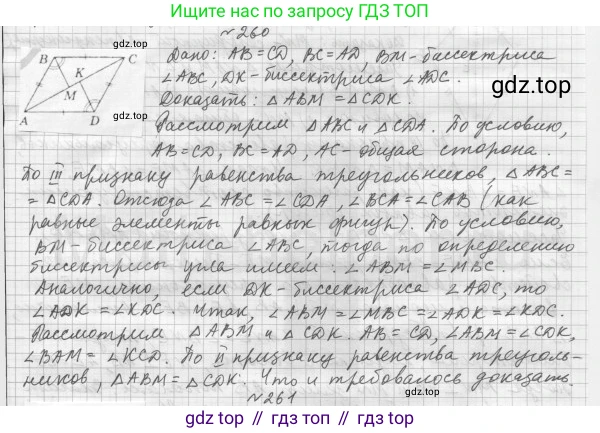 Ищите нас по запросу ГДЗ ТОП
gdz.top
№260
B C
K
M
A D
Дано: AB=CD, BC=AD, BM-биссектриса
∠ABC, DK-биссектриса ∠ADC.
gdz.top
Доказать: △ABM = △CDK.
Рассмотрим △ABC и △CDA. По условию,
AB=CD, BC=AD, AC-общая сторона.
По III признаку равенства треугольников, △ABC =
= △CDA. Отсюда ∠ABC = ∠CDA, ∠BCA = ∠CAB (как
равные элементы равных фигур). По условию,
BM-биссектриса ∠ABC, тогда по определению
биссектрисы угла имеем: ∠ABM = ∠MBC.
Аналогично, если DK-биссектриса ∠ADC, то
∠ADK = ∠KDC. Итак, ∠ABM = ∠MBC = ∠ADK = ∠KDC.
Рассмотрим △ABM и △CDK. AB = CD, ∠ABM = ∠CDK,
∠BAM = ∠KCD. По II признаку равенства треуголь-
ников, △ABM = △CDK. Что и требовалось доказать.
№261
gdz.top // гдз.top // гдз.топ